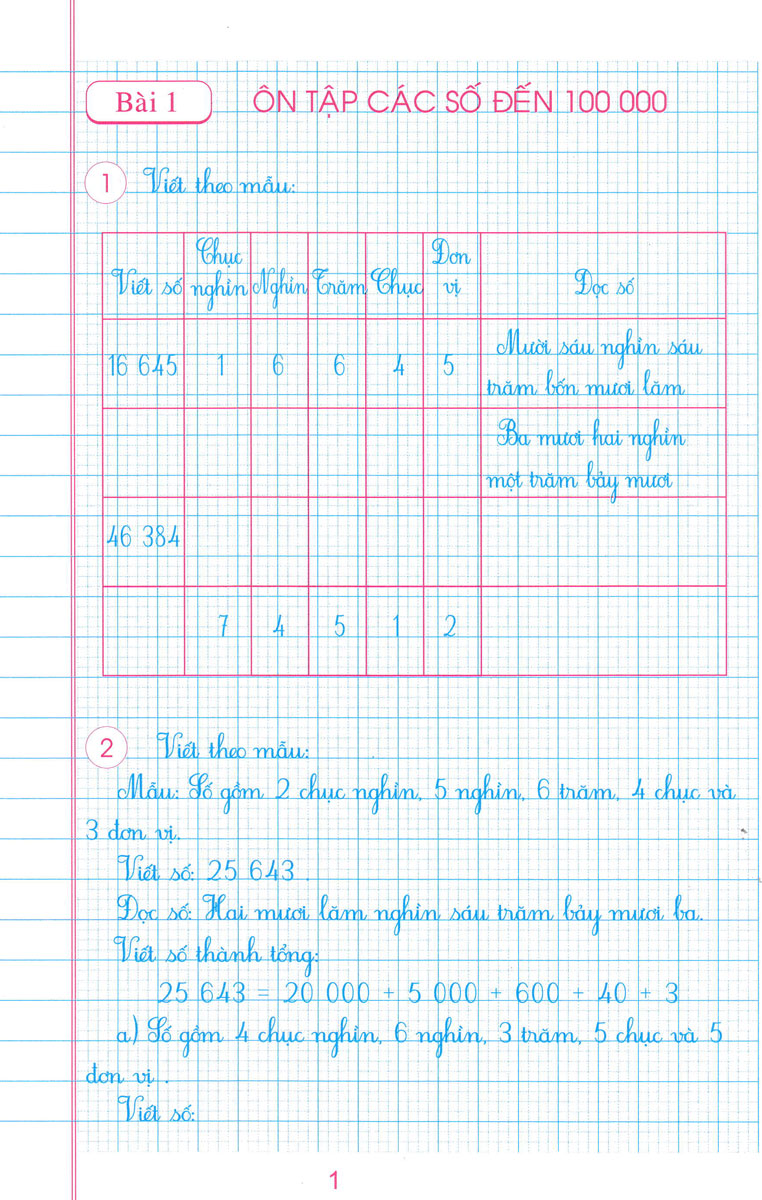 Bài 1
ÔN TẬP CÁC SỐ ĐẾN 100 000
1 Viết theo mẫu:
Viết số Chục nghìn Nghìn Trăm Chục Đơn vị Đọc số
16 645 1 6 6 4 5 Mười sáu nghìn sáu
trăm bốn mươi lăm
Ba mươi hai nghìn
một trăm bảy mươi
46 384
7 4 5 1 2
2 Viết theo mẫu:
Mẫu: Số gồm 2 chục nghìn, 5 nghìn, 6 trăm, 4 chục và
3 đơn vị.
Viết số: 25 643.
Đọc số: Hai mươi lăm nghìn sáu trăm bảy mươi ba.
Viết số thành tổng:
25 643 = 20 000 + 5 000 + 600 + 40 + 3
a) Số gồm 4 chục nghìn, 6 nghìn, 3 trăm, 5 chục và 5
đơn vị.
Viết số:
1